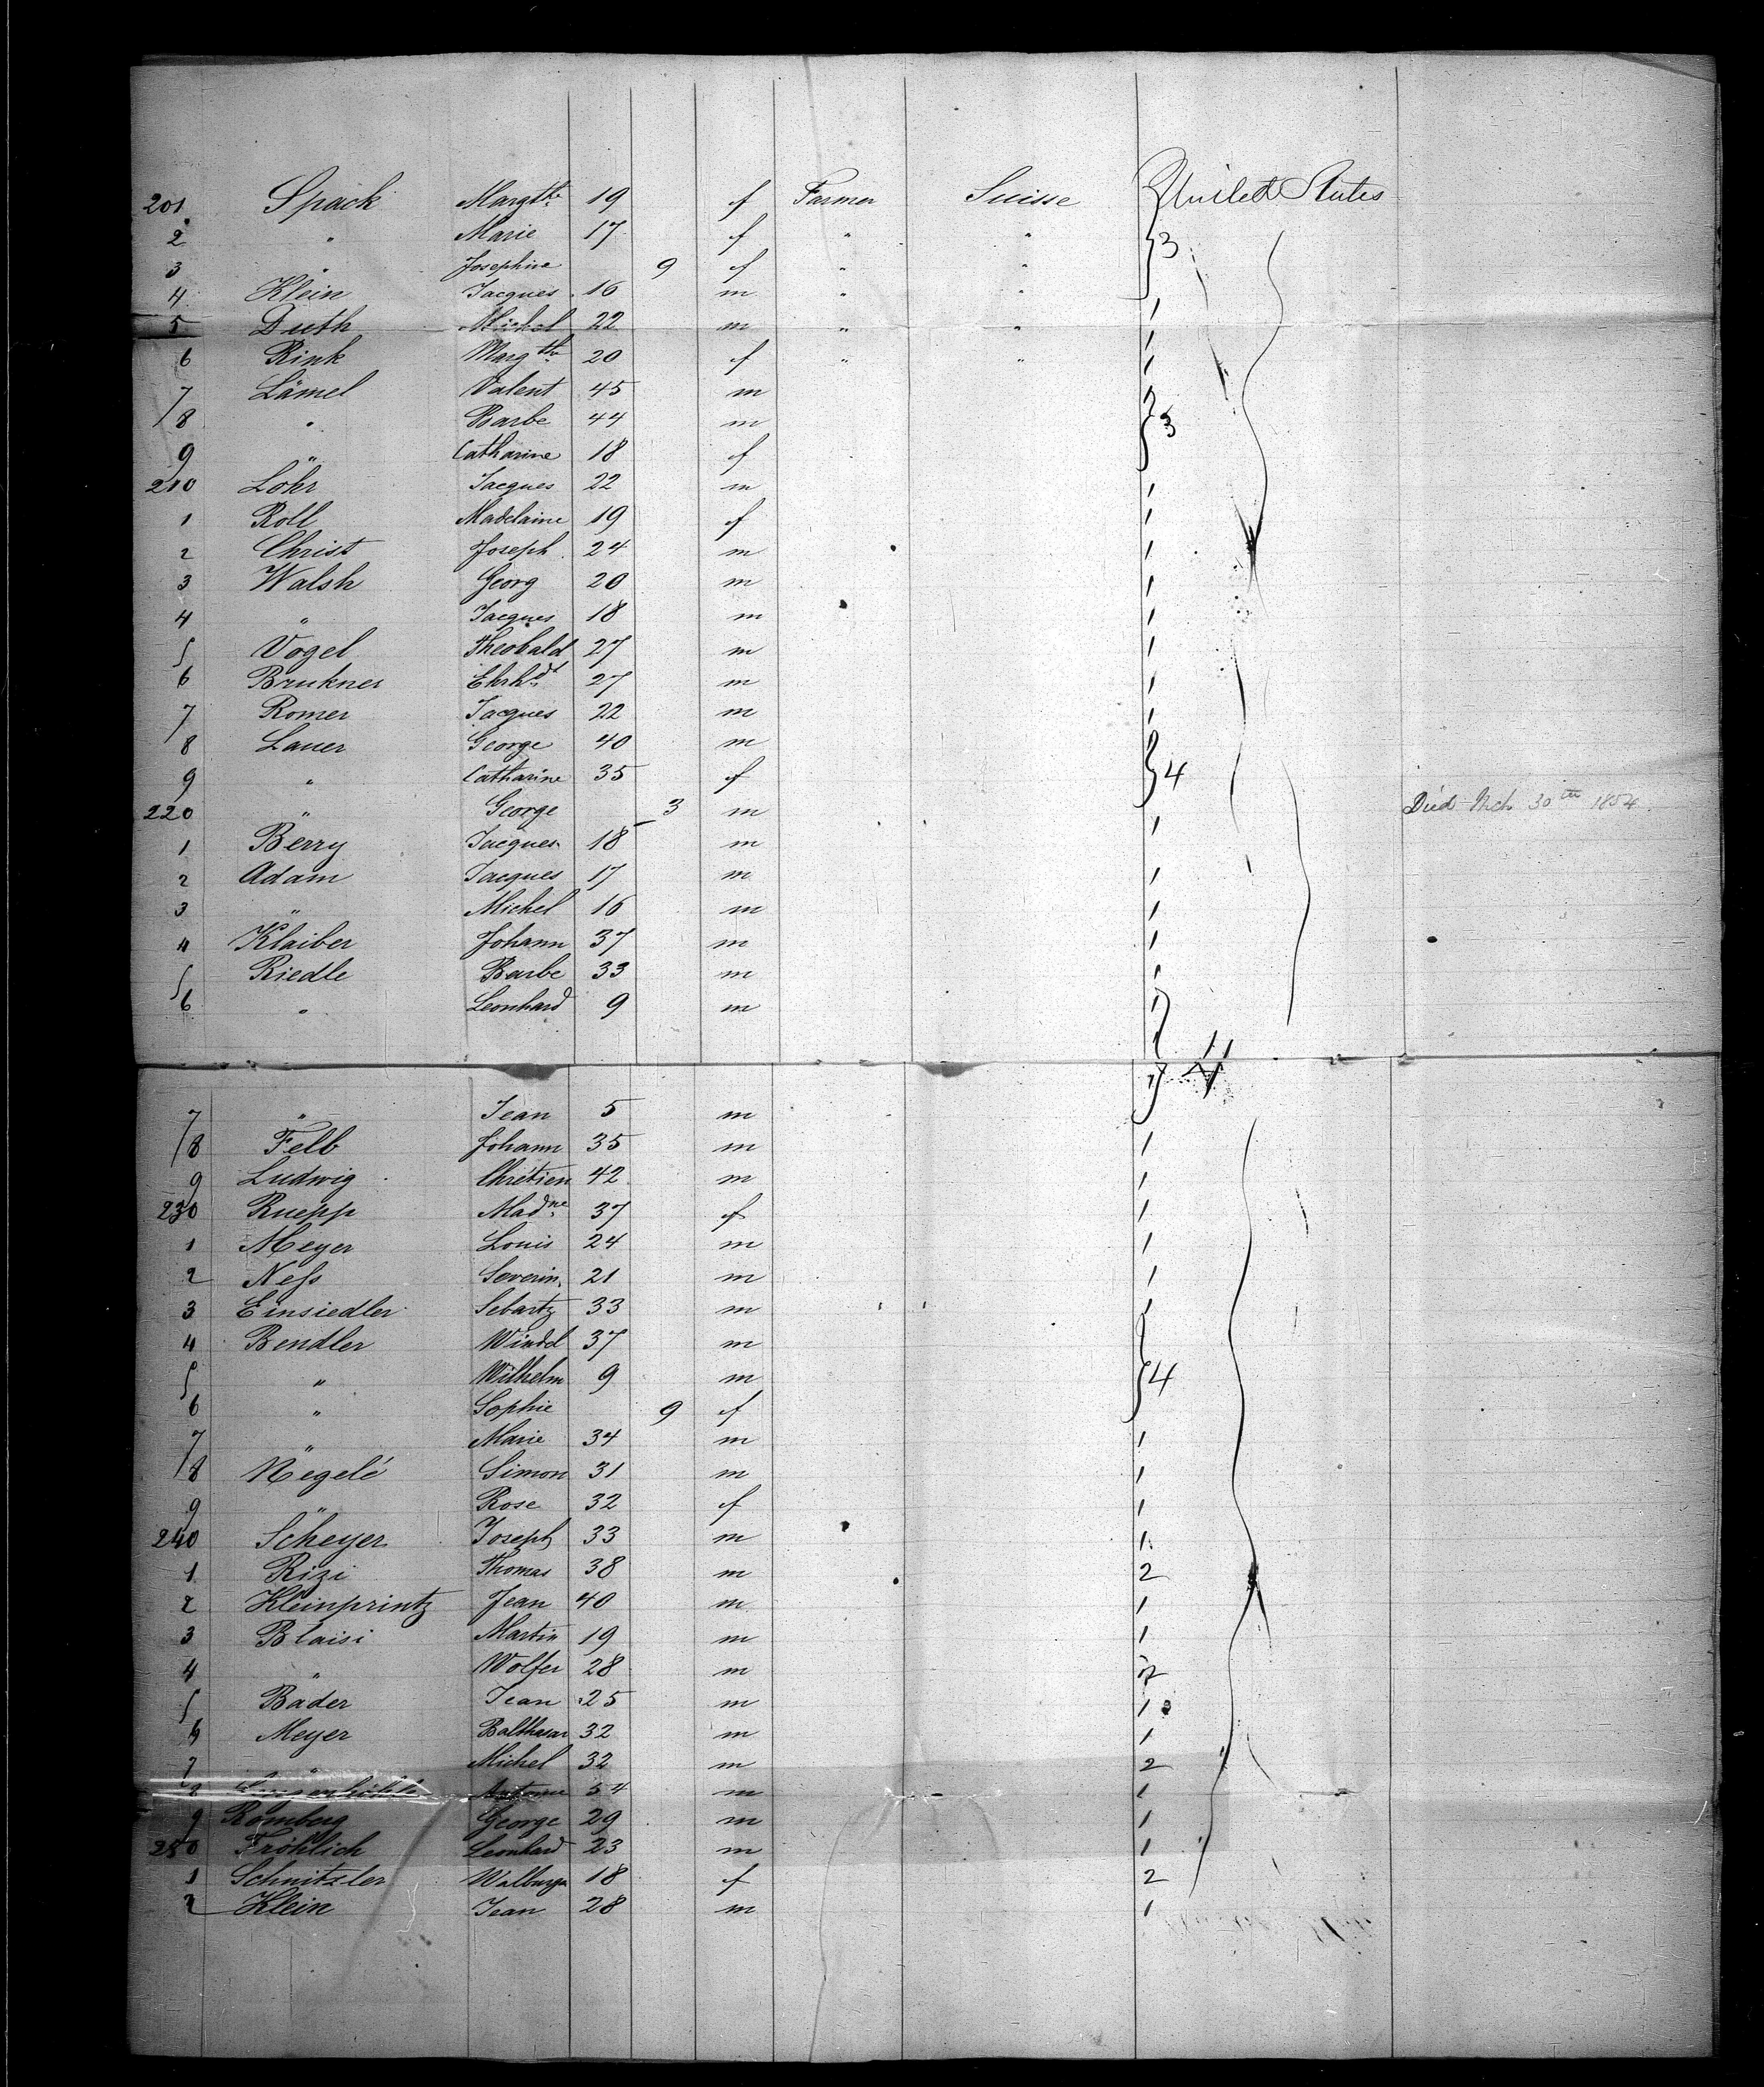 201 Spack Margthe 19 f Farmer Suisse United States
2 " Marie 17 f " " 3
3 " Josephine 9 f " "
4 Klein Jacques 16 m " " 1
5 Duth Michel 22 m " " 1
6 Rink Margthe 20 f " " 1
7 Lämel Valent 45 m
8 " Barbe 44 m 3
9 " Catharine 18 f
210 Löhr Jacques 22 m 1
1 Roll Madelaine 19 f 1
2 Christ Joseph 24 m 1
3 Walsh Georg 20 m 1
4 " Jacques 18 m 1
5 Vogel Theobald 27 m 1
6 Brukner Ehrhdt 27 m 1
7 Romer Jacques 22 m 1
8 Lauer George 40 m
9 " Catharine 35 f 4
220 " George 3 m Died Mch 30th 1854
1 Berry Jacques 18 m 1
2 Adam Jacques 17 m 1
3 " Michel 16 m 1
4 Klaiber Johann 37 m 1
5 Riedle Barbe 33 m 1
6 " Leonhard 9 m 1
7 " Jean 5 m
8 Felb Johann 35 m 1
9 Ludwig Chrétien 42 m 1
230 Ruepp Madne 37 f 1
1 Meyer Louis 24 m 1
2 Neſs Severin 21 m 1
3 Einsiedler Sebartz 33 m 1
4 Bendler Windel 37 m
5 " Wilhelm 9 m 4
6 " Sophie 9 f
7 " Marie 34 m 1
8 Negelé Simon 31 m 1
9 " Rose 32 f 1
240 Scheyer Joseph 33 m 1
1 Rizi Thomas 38 m 2
2 Kleinprintz Jean 40 m 1
3 Blaisi Martin 19 m 1
4 " Wolfer 28 m 2
5 Bader Jean 25 m 1
6 Meyer Balthasar 32 m 1
7 " Michel 32 m 2
8 Antoine 54 m 1
9 Romberg George 29 m 1
250 Fröhlich Leonhard 23 m 1
1 Schnitzler Walburga 18 f 2
2 Klein Jean 28 m 1